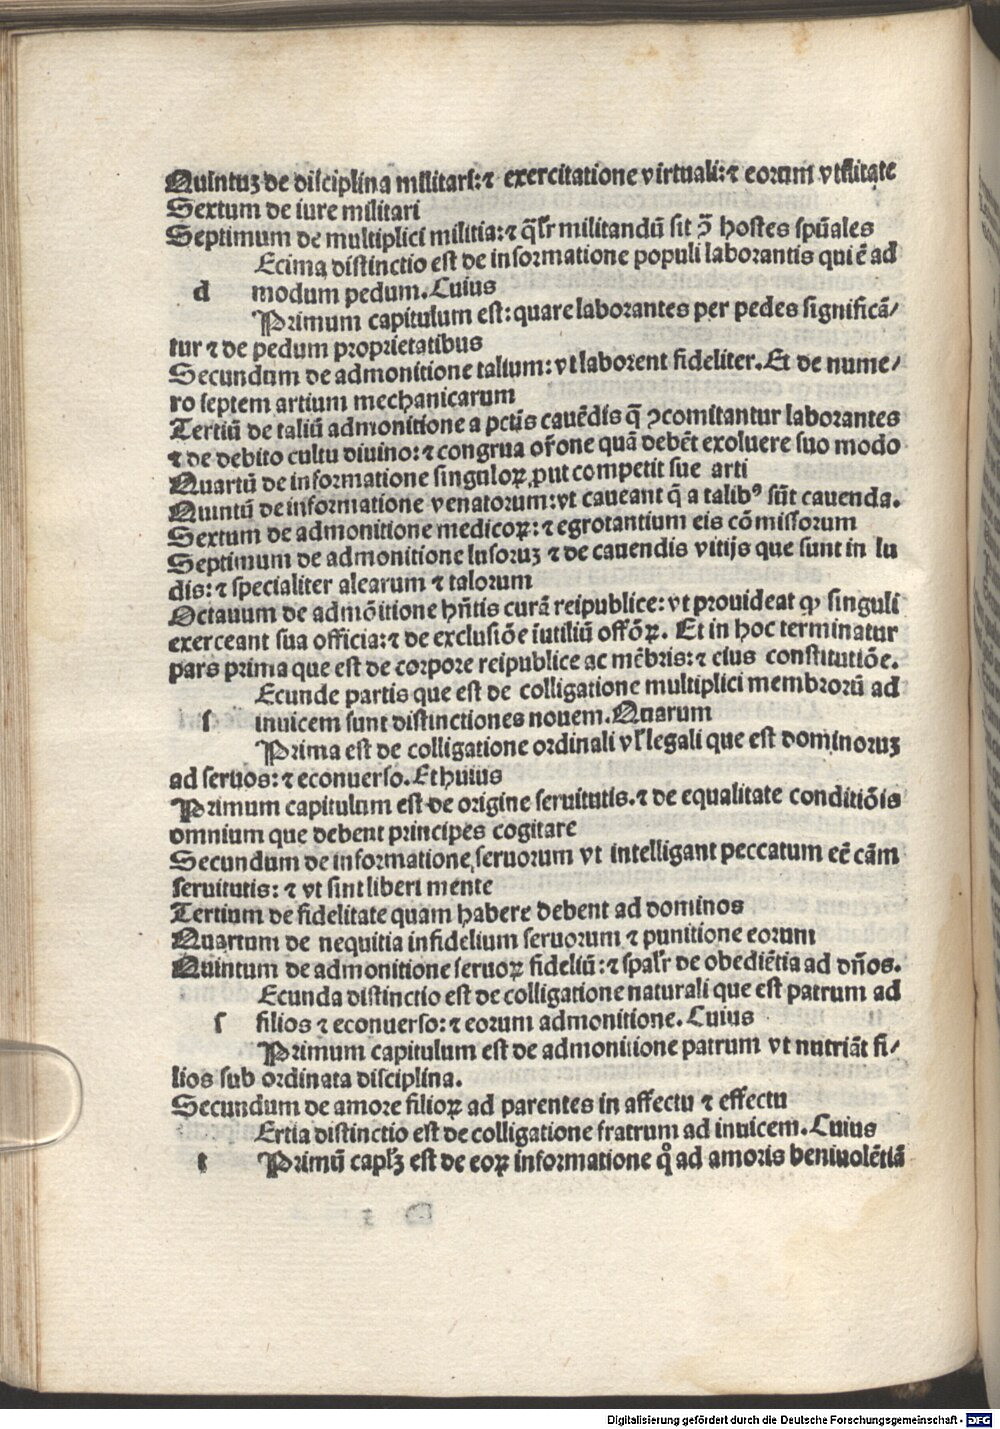 Quintuꝫ de disciplina militari: ⁊ exercitatione virtuali: ⁊ eorum vtilitate
Sextum de iure militari
Septimum de multiplici militia: ⁊ q̃lr̃ militandũ sit ꝯ̃ hostes spũales
Ecima distinctio est de informatione populi laborantis qui ẽ ad
d modum pedum. Cuius
Primum capitulum est: quare laborantes per pedes significã/
tur ⁊ de pedum proprietatibus
Secundum de admonitione talium: vt laborent fideliter. Et de nume/
ro septem artium mechanicarum
Tertiũ de taliũ admonitione a pctĩs cauẽdis q̃ ꝯcomitantur laborantes
⁊ de debito cultu diuino: ⁊ congrua or̃one quã debẽt exoluere suo modo
Quartũ de informatione singuloꝝ ꝓut competit sue arti
Quintũ de informatione venatorum: vt caueant q̃ a talibꝰ sũt cauenda.
Sextum de admonitione medicoꝝ: ⁊ egrotantium eis cõmissorum
Septimum de admonitione lusoruꝫ ⁊ de cauendis vitijs que sunt in lu
dis: ⁊ specialiter alearum ⁊ talorum
Octauum de admõitione hñtis curã reipublice: vt prouideat ꝙ singuli
exerceant sua officia: ⁊ de exclusiõe ĩutiliũ offõꝝ. Et in hoc terminatur
pars prima que est de corpore reipublice ac mẽbris: ⁊ eius constitutiõe.
Ecunde partis que est de colligatione multiplici membrorũ ad
s inuicem sunt distinctiones nouem. Quarum
Prima est de colligatione ordinali vl̃ legali que est dominoruꝫ
ad seruos: ⁊ econuerso. Et huius
Primum capitulum est de origine seruitutis. ⁊ de equalitate conditiõis
omnium que debent principes cogitare
Secundum de informatione seruorum vt intelligant peccatum eẽ cãm
seruitutis: ⁊ vt sint liberi mente
Tertium de fidelitate quam habere debent ad dominos
Quartum de nequitia infidelium seruorum ⁊ punitione eorum
Quintum de admonitione seruoꝝ fideliũ: ⁊ spalr̃ de obediẽtia ad dños.
Ecunda distinctio est de colligatione naturali que est patrum ad
s filios ⁊ econuerso: ⁊ eorum admonitione. Cuius
Primum capitulum est de admonitione patrum vt nutriãt fi/
lios sub ordinata disciplina.
Secundum de amore filioꝝ ad parentes in affectu ⁊ effectu
Ertia distinctio est de colligatione fratrum ad inuicem. Cuius
t Primũ caplꝫ est de eoꝝ informatione qͦ ad amoris beniuolẽtiã
Digitalisierung gefördert durch die Deutsche Forschungsgemeinschaft - DFG